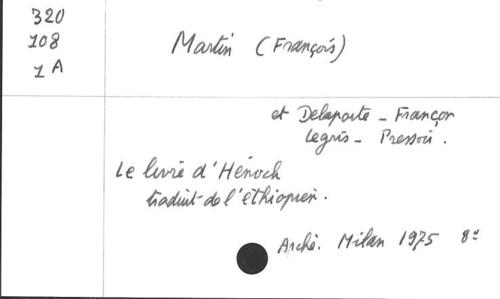 320
108
1 A
Martin (François)
et Delaporte - Françon
Legris - Pressoir.
Le livre d'Hénoch
traduit de l'éthiopien.
Arché. Milan 1975 8º